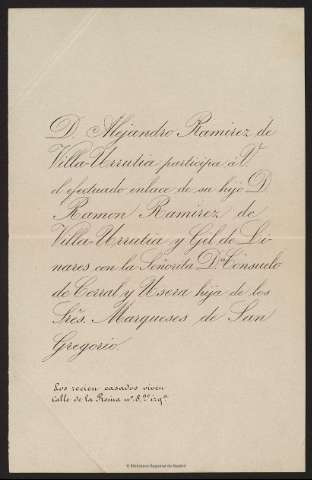 D. Alejandro Ramirez de
Villa-Urrutia participa á V.
el efectuado enlace de su hijo D.
Ramon Ramirez de
Villa-Urrutia y Gil de Li-
nares con la Señorita D.ª Consuelo
de Corral y Usera hija de los
Srēs. Marqueses de San
Gregorio.
Los recien casados viven
Calle de la Reina nº. 8,
© Biblioteca Regional de Madrid